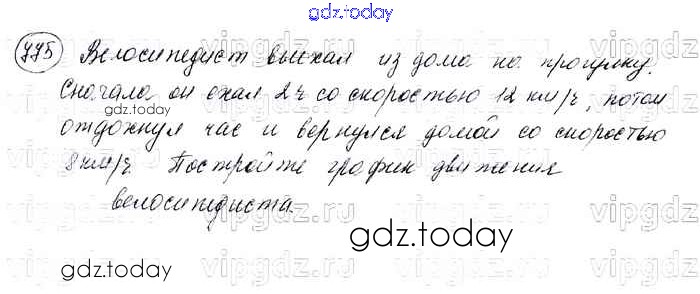 gdz.today
775 Велосипедист выехал из дома на прогулку.
Сначала он ехал 2ч со скоростью 12 км/ч, потом
gdz.today
отдохнул час и вернулся домой со скоростью
8 км/ч. Постройте график движения
велосипедиста.
gdz.today
gdz.today
vipgdz
vipgdz
vipgdz
vipgdz